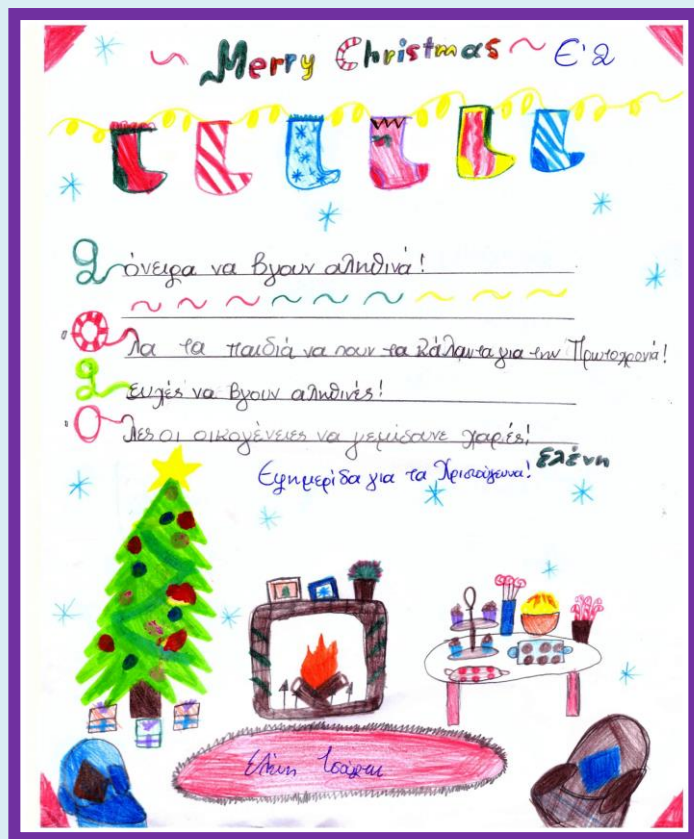 Merry Christmas Ε'2
2 όνειρα να βγουν αληθινά!
Όλα τα παιδιά να πουν τα κάλαντα για την Πρωτοχρονιά!
2 ευχές να βγουν αληθινές!
Όλες οι οικογένειες να γεμίσουνε χαρές!
Ελένη
Εφημερίδα για τα Χριστούγεννα!
Ελένη